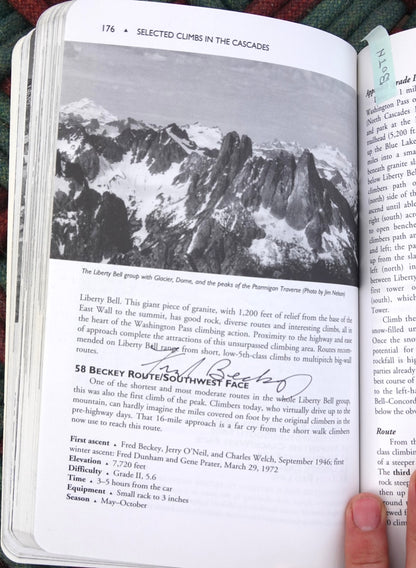 176 ▲ SELECTED CLIMBS IN THE CASCADES
The Liberty Bell group with Glacier, Dome, and the peaks of the Ptarmigan Traverse (Photo by Jim Nelson)
Liberty Bell. This giant piece of granite, with 1,200 feet of relief from the base of the
East Wall to the summit, has good rock, diverse routes and interesting climbs, all in
the heart of the Washington Pass climbing action. Proximity to the highway and ease
of approach complete the attractions of this unsurpassed climbing area. Routes recom-
mended on Liberty Bell range from short, low-5th-class climbs to multipitch big-wall
routes.
Fred Beckey
58 BECKEY ROUTE/SOUTHWEST FACE
One of the shortest and most moderate routes in the whole Liberty Bell group,
this was also the first climb of the peak. Climbers today, who virtually drive up to the
mountain, can hardly imagine the miles covered on foot by the original climbers in the
pre-highway days. That 16-mile approach is a far cry from the short walk climbers
now use to reach this route.
First ascent • Fred Beckey, Jerry O'Neil, and Charles Welch, September 1946; first
winter ascent: Fred Dunham and Gene Prater, March 29, 1972
Elevation • 7,720 feet
Difficulty • Grade II, 5.6
Time • 3–5 hours from the car
Equipment • Small rack to 3 inches
Season • May–October
1 mil
Washington Pass
(North Cascades
and park at the
mulhead (5,200 f
up the Blue Lake
miles into a small
beneath granite sl
below Liberty Bel
climbers path or
(north) side of the
ascend until able
right (south) acro
to open benches
climbers path and
and left; the pa
up from the sla
left (north) in
between Liberty
first tower o
(south), which
Tower.
Climb the
snow-filled un
Once the snow
potential for
rockfall is hig
parties already
best course of
to the left-han
Bell–Concord
below the obvi
Route
From th
class climbing
of a steeper
The third
rock steep
then up
number